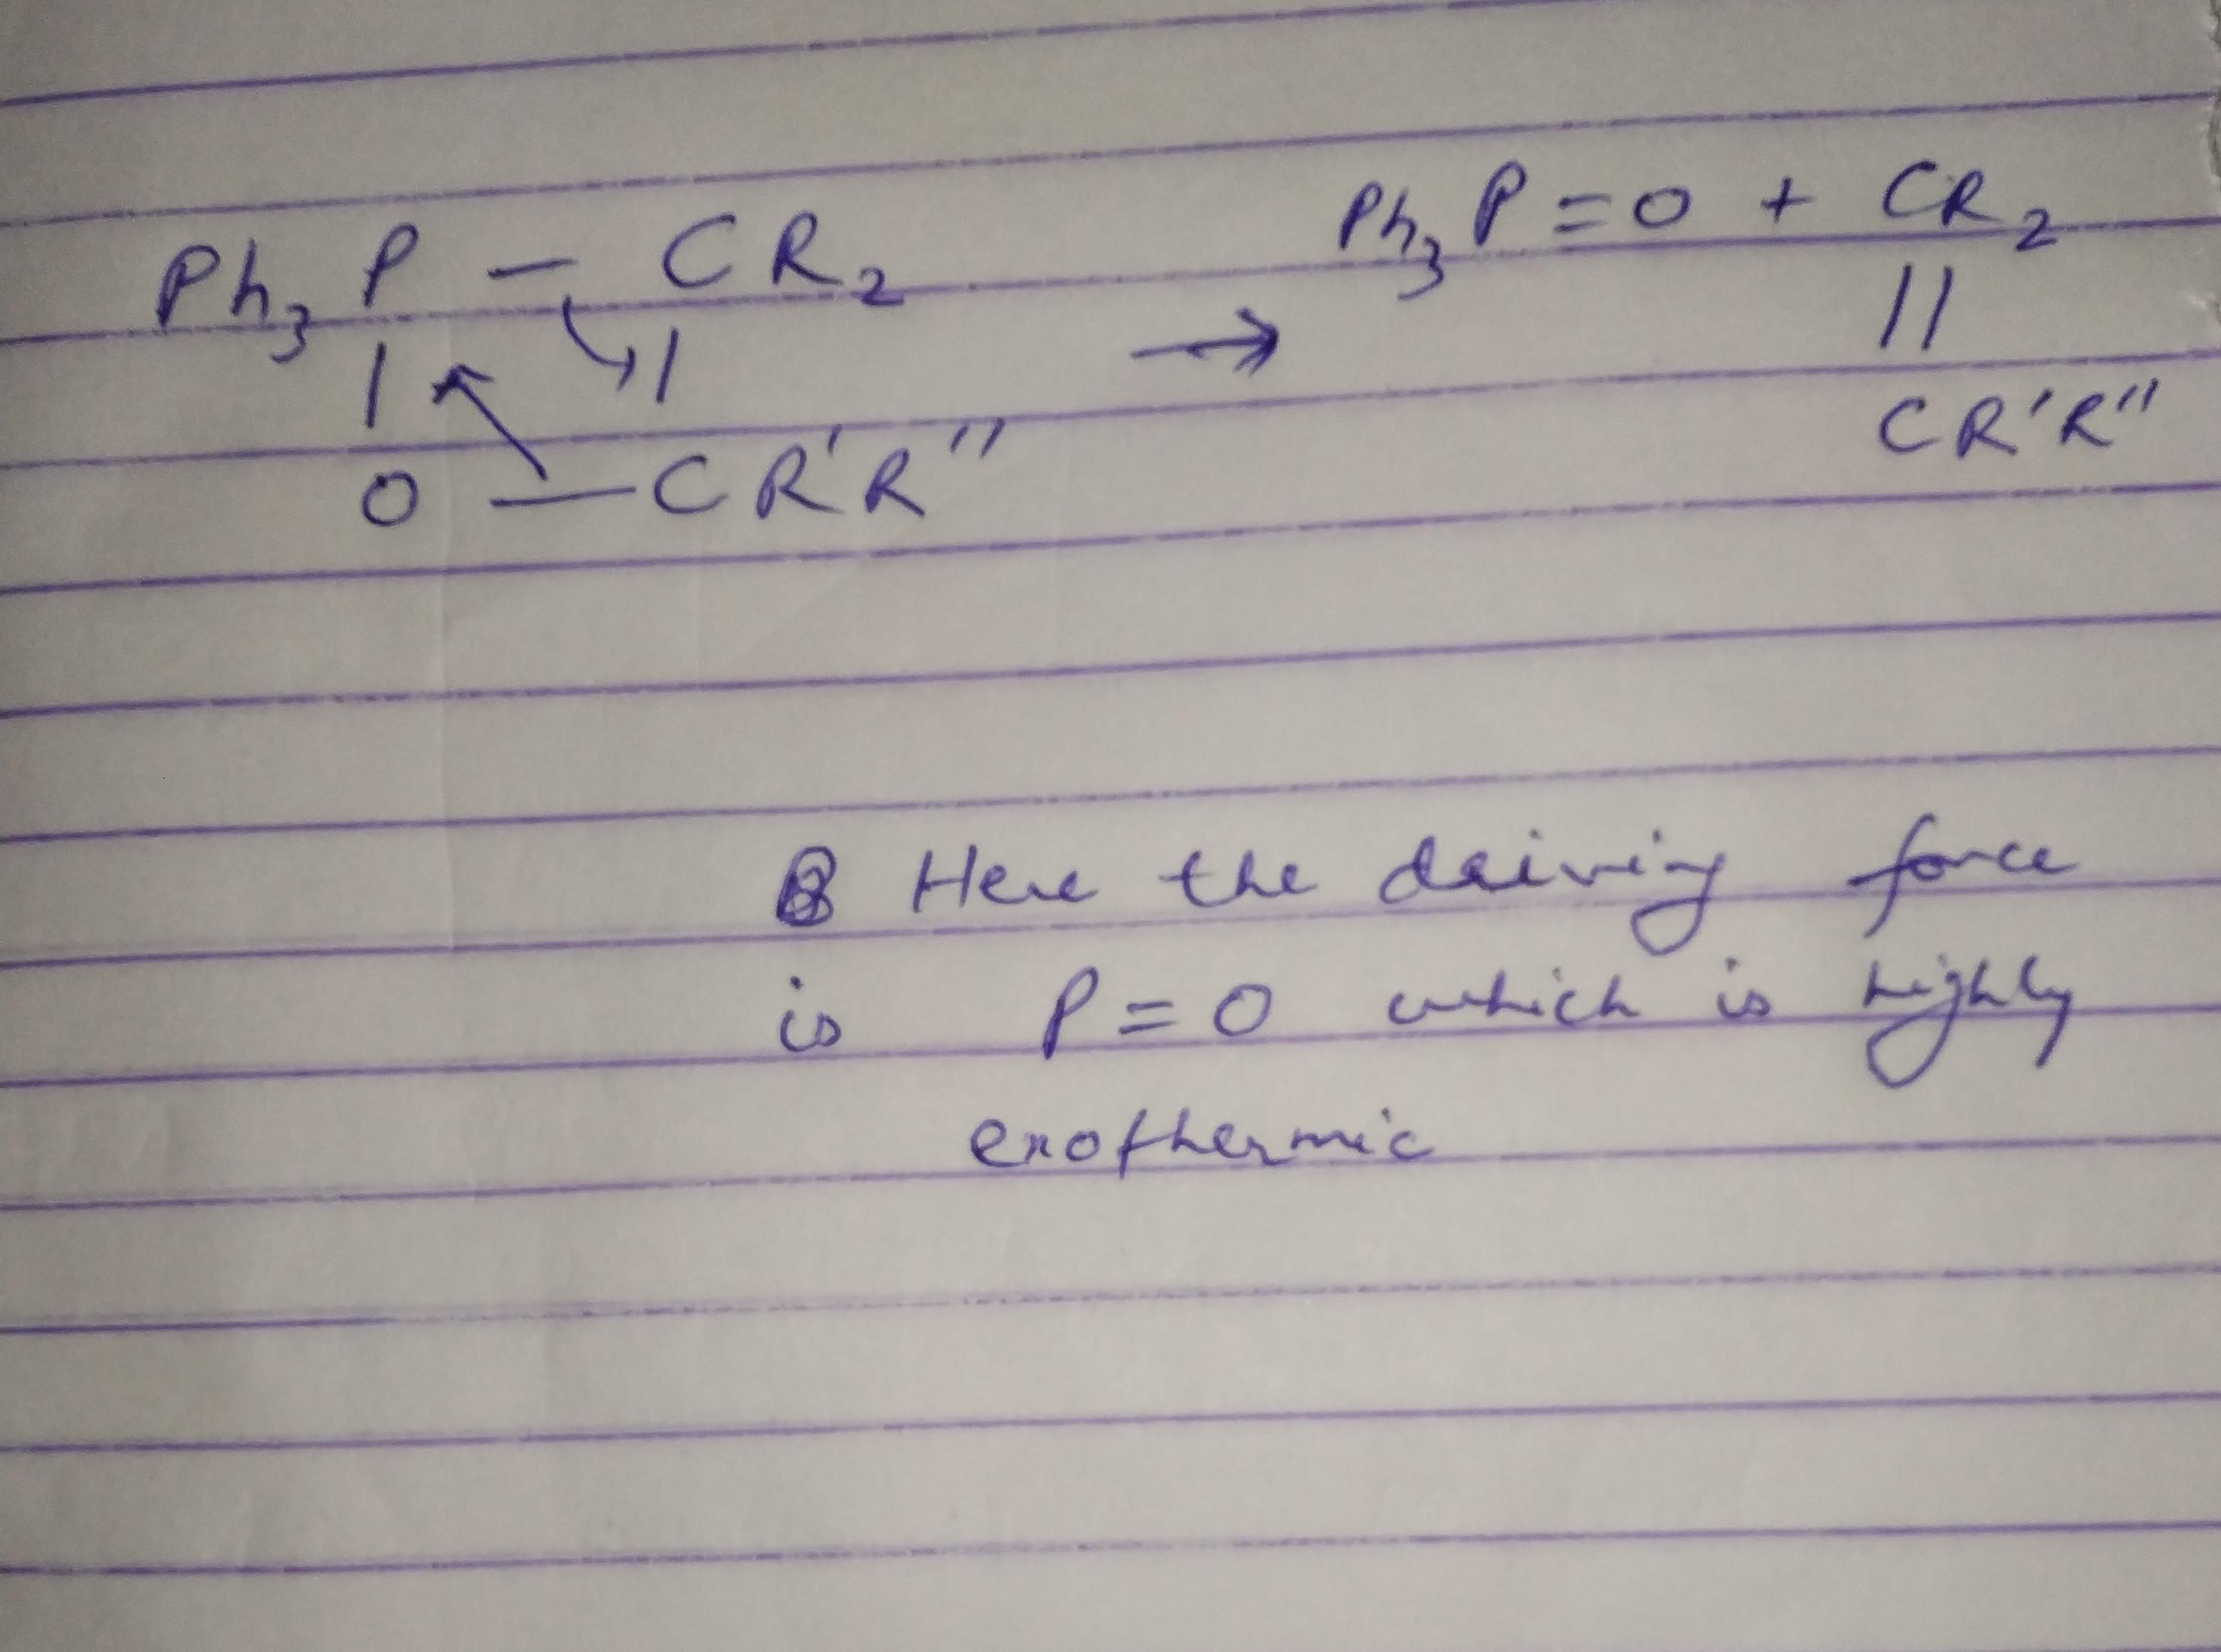 Ph₃P=O + CR₂
Ph₃P — CR₂
| | → ||
CR'R''
O — CR'R''
Here the driving force
is P=O which is highly
exothermic